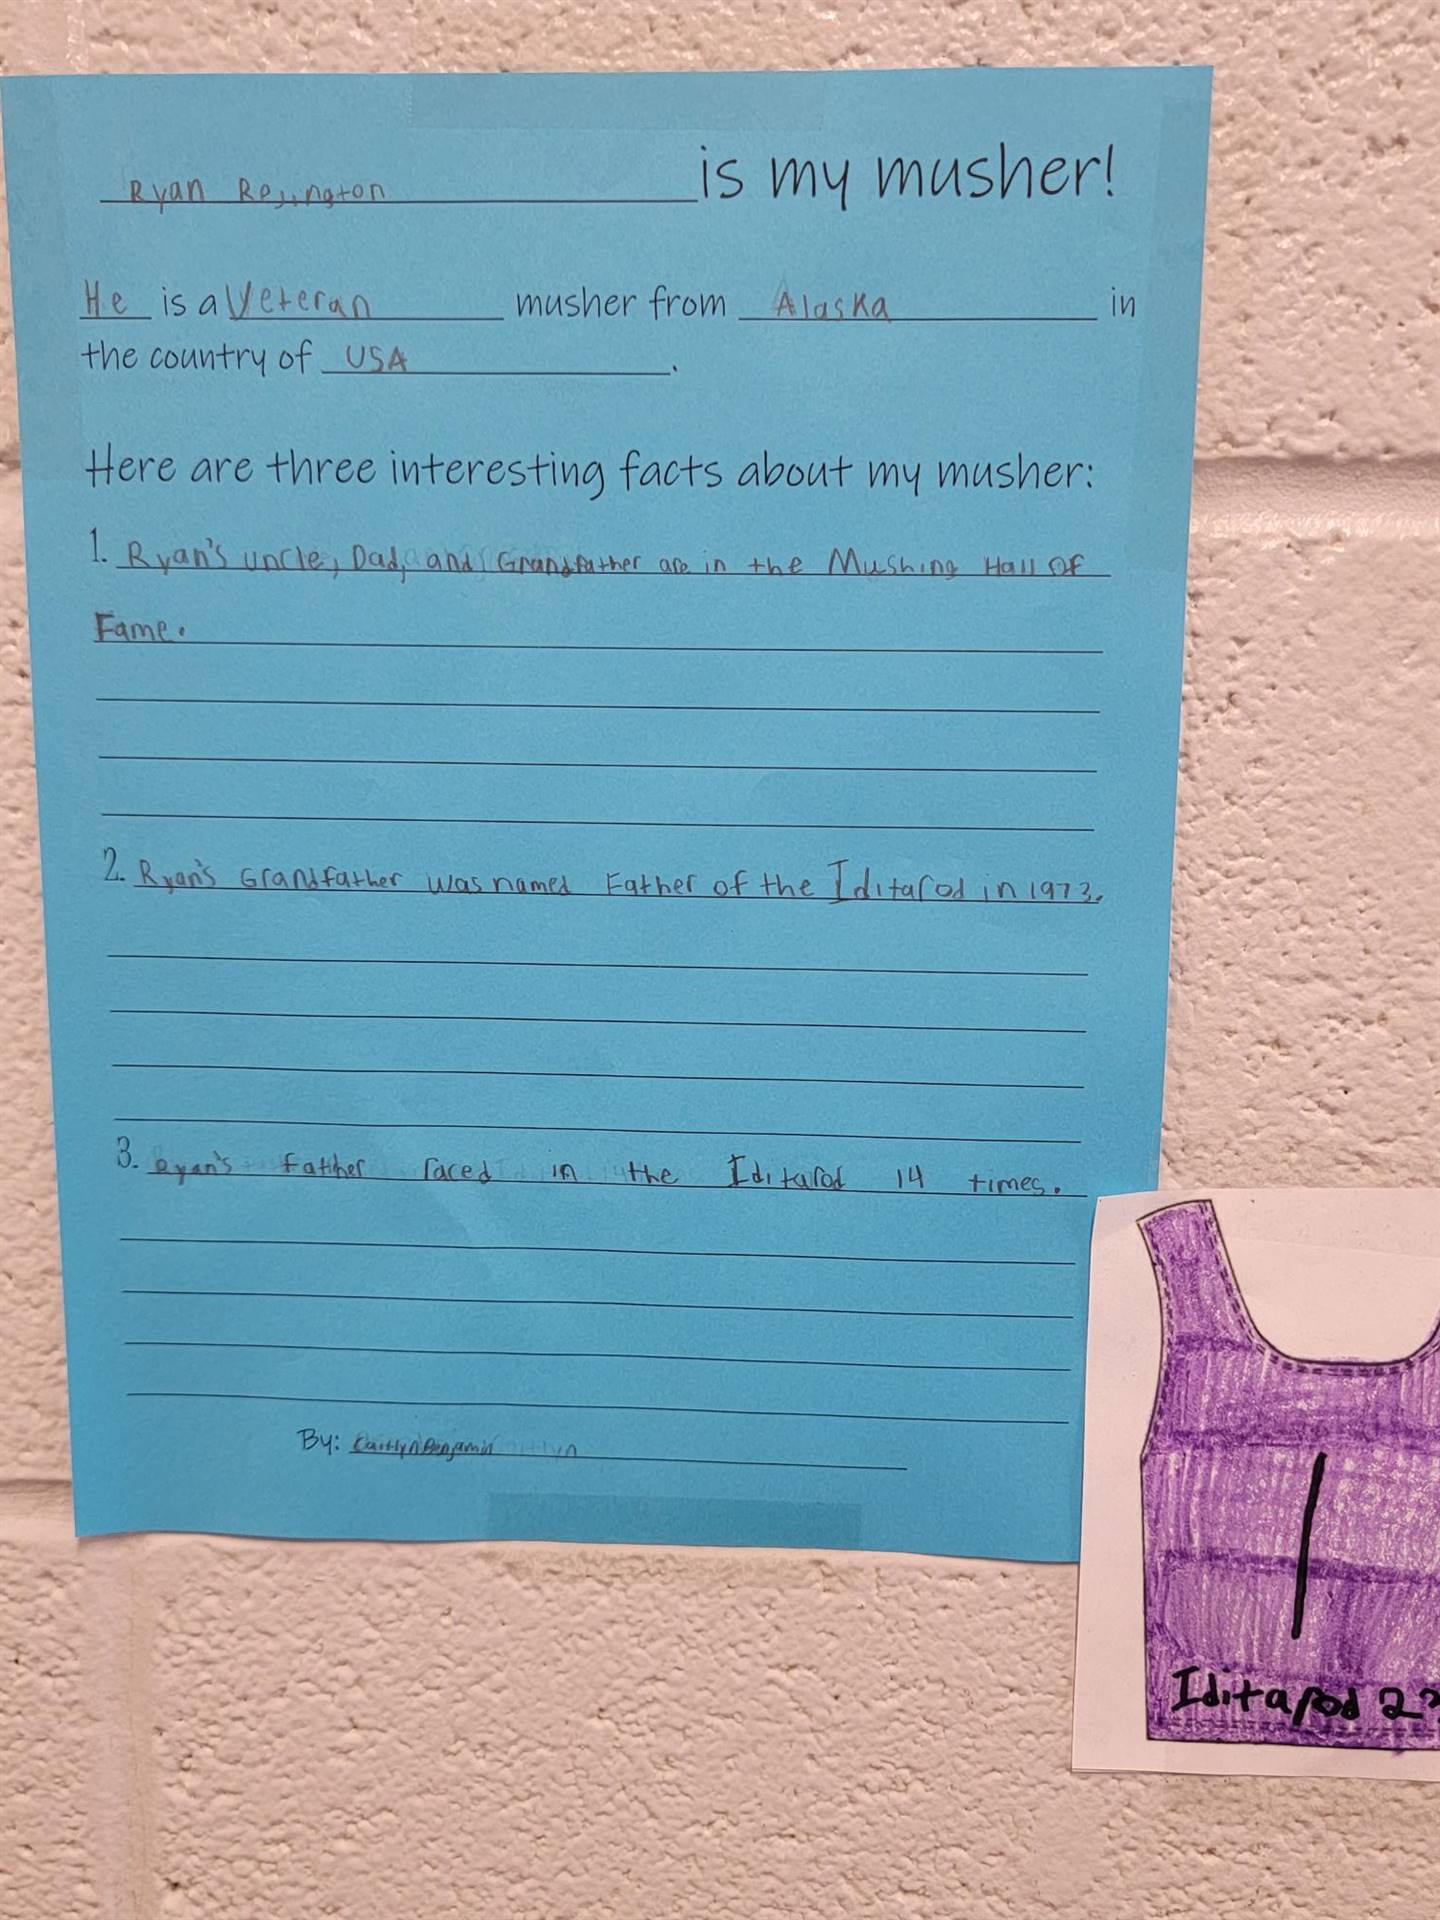 Ryan Regington is my musher!
He is a Veteran musher from Alaska in
the country of USA.
Here are three interesting facts about my musher:
1. Ryan's uncle, Dad, and Grandfather are in the Mushing Hall OF
Fame.
2. Ryan's Grandfather was named Father of the Iditarod in 1973.
3. Ryan's father raced in the Iditarod 14 times.
By: Caitlyn Benjamin
1
Iditarod